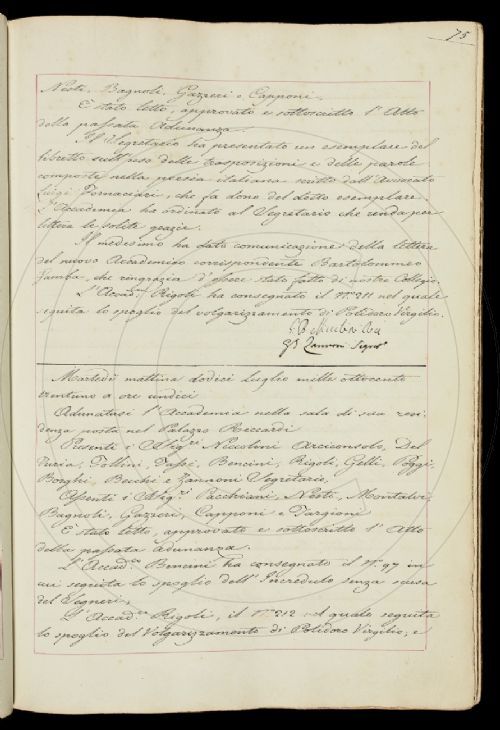 75
Nesti, Bagnoli, Gazzeri e Capponi.
È stato letto, approvato e sottoscritto l'Atto
della passata Adunanza.
Il Segretario ha presentato un esemplare del
libretto sull'uso delle trasposizioni e delle parole
composte nella poesia italiana scritto dall'Avvocato
Luigi Fornaciari, che fa dono del detto esemplare.
L'Accademia ha ordinato al Segretario che renda per
lettera le solite grazie.
Il medesimo ha fatto comunicazione della lettera
del nuovo Accademico corrispondente Bartolommeo
Gamba, che ringrazia d'essere stato fatto di nostro Collegio.
L'Accad.co Rigoli ha consegnato il N.o 211 nel quale
seguita lo spoglio del volgarizzamento di Polidoro Virgilio.
G B Zannoni Segret.o
Martedì mattina dodici Luglio mille ottocento
trentuno a ore undici
Adunatasi l'Accademia nella sala di sua resi-
denza posta nel Palazzo Riccardi
Presenti i Sigg.ri Niccolini Arciconsolo, Del
Furia, Follini, Tassi, Bencini, Rigoli, Gelli, Poggi,
Borghi, Becchi e Zannoni Segretario,
Assenti i Sigg.ri Pacchiani, Nesti, Montalvi,
Bagnoli, Gazzeri, Capponi e Targioni
È stato letto, approvato e sottoscritto l'Atto
della passata Adunanza.
L'Accad.co Bencini ha consegnato il N.o 97 in
cui seguita lo spoglio dell'Incredulo senza scusa
del Segneri;
L'Accad.co Rigoli, il N.o 212 nel quale seguita
lo spoglio del Volgarizzamento di Polidoro Virgilio; e